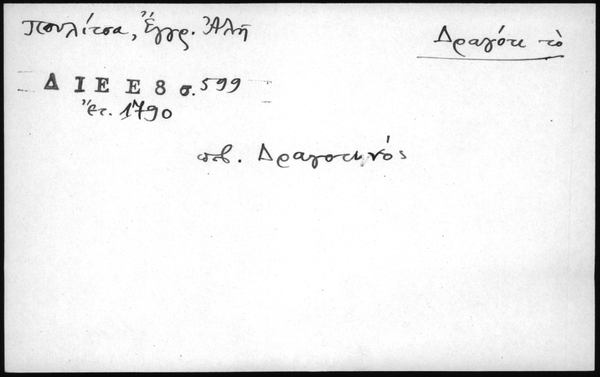 Πουλίτσα, Ἔγγρ. Ἀλῆ
Δραγότι τὸ
Δ Ι Ε Ε 8 σ. 599
ἔτ. 1790
πβ. Δραγοτινός